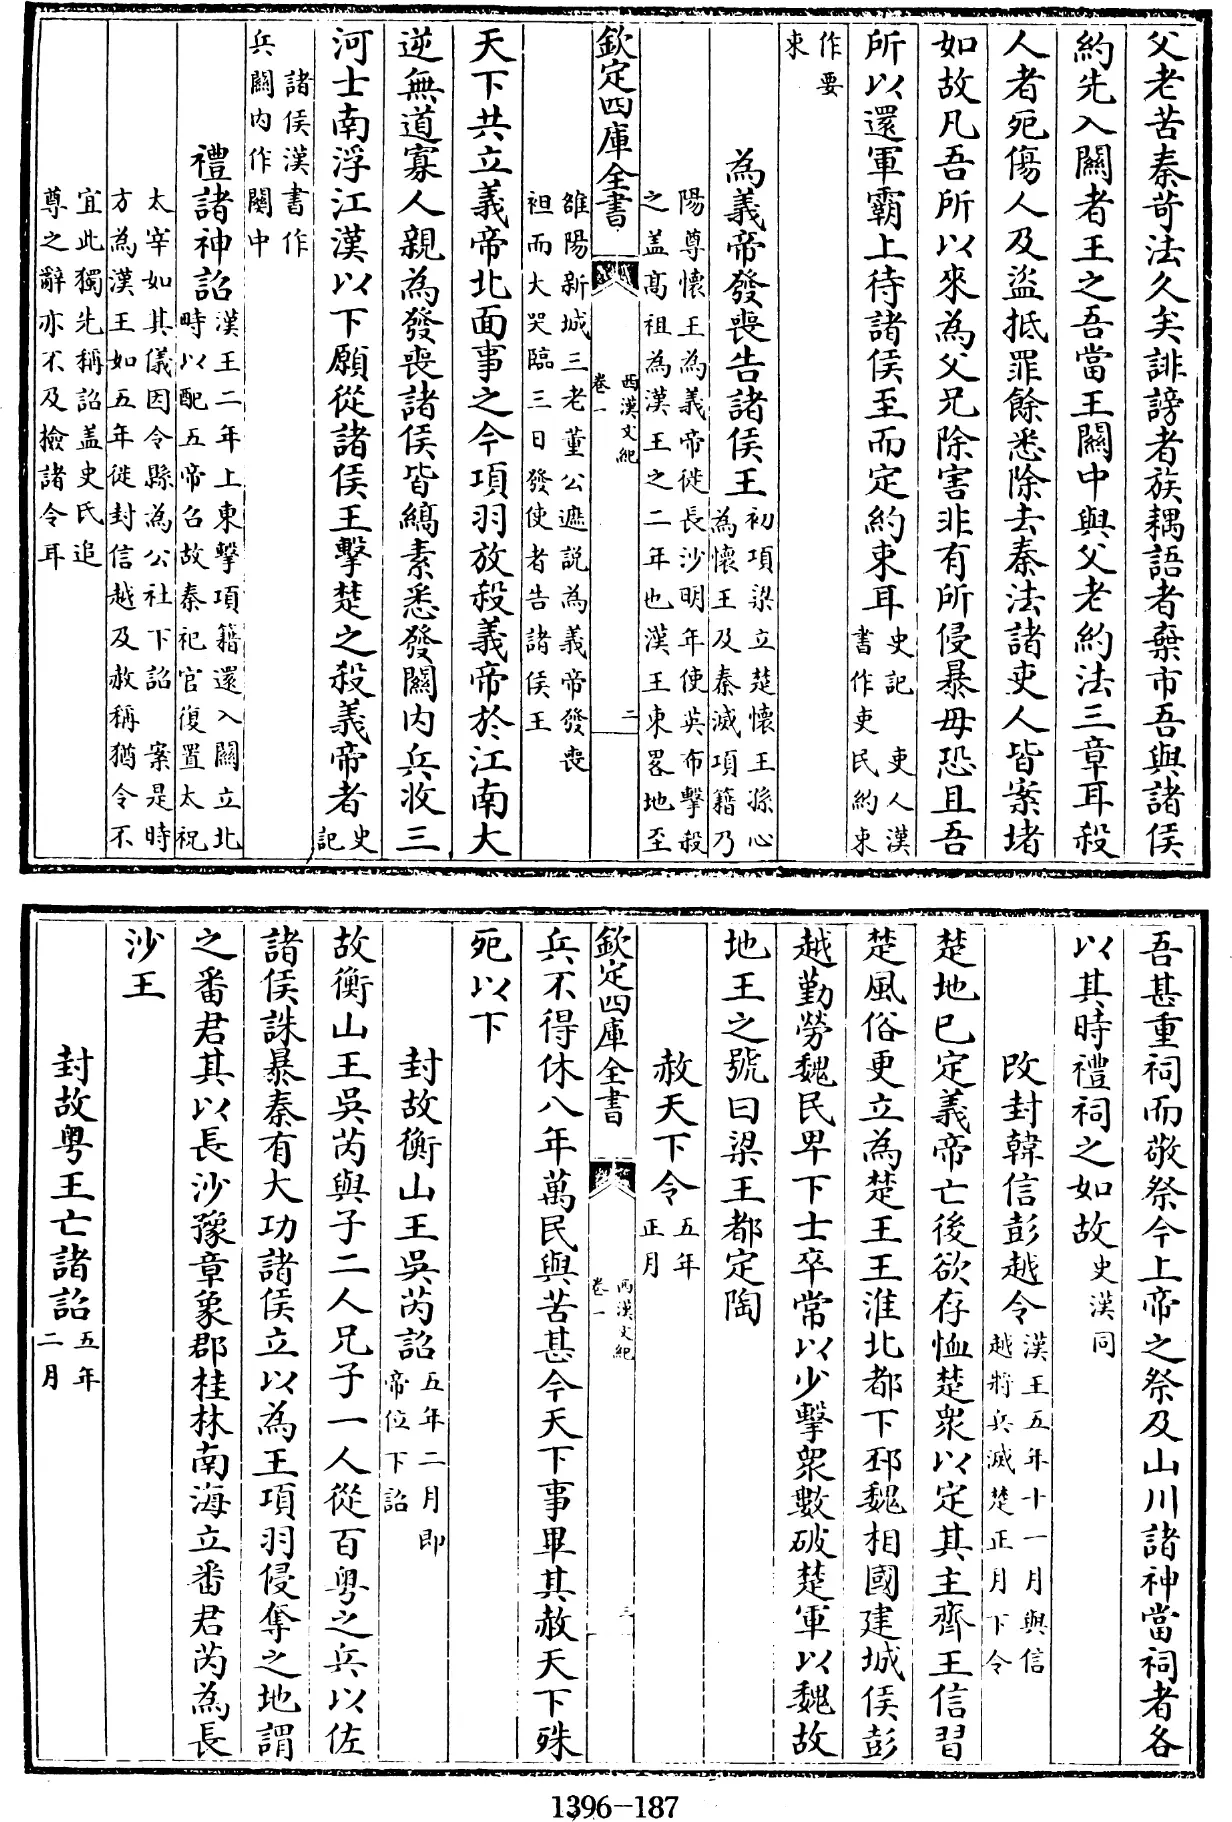 父老苦秦苛法久矣誹謗者族耦語者棄市吾與諸侯
約先入關者王之吾當王關中與父老約法三章耳殺
人者死傷人及盜抵罪餘悉除去秦法諸吏人皆案堵
如故凡吾所以來為父兄除害非有所侵暴毋恐且吾
所以還軍霸上待諸侯至而定約束耳史記 吏人漢
書作吏民約束
作要
束
為義帝發喪告諸侯王初項梁立楚懷王孫心
為懷王及秦滅項籍乃
陽尊懷王為義帝徙長沙明年使英布擊殺
之盖髙祖為漢王之二年也漢王東畧地至
欽定四庫全書
西漢文紀
卷一
二
雒陽新城三老董公遮説為義帝發喪
袒而大哭臨三日發使者告諸侯王
天下共立義帝北面事之今項羽放殺義帝於江南大
逆無道寡人親為發喪諸侯皆縞素悉發關内兵收三
河士南浮江漢以下願從諸侯王擊楚之殺義帝者史
記
諸侯漢書作
兵關内作關中
禮諸神詔漢王二年上東擊項籍還入關立北
時以配五帝召故秦祀官復置太祝
太宰如其儀因令縣為公社下詔 案是時
方為漢王如五年徙封信越及赦稱猶令不
宜此獨先稱詔盖史氏追
尊之辭亦不及撿諸令耳
吾甚重祠而敬祭今上帝之祭及山川諸神當祠者各
以其時禮祠之如故史漢同
改封韓信彭越令漢王五年十一月與信
越將兵滅楚正月下令
楚地已定義帝亡後欲存恤楚衆以定其主齊王信習
楚風俗更立為楚王王淮北都下邳魏相國建城侯彭
越勤勞魏民卑下士卒常以少擊衆數破楚軍以魏故
地王之號曰梁王都定陶
赦天下令五年
正月
欽定四庫全書
西漢文紀
卷一
三
兵不得休八年萬民與苦甚今天下事畢其赦天下殊
死以下
封故衡山王吳芮詔五年二月即
帝位下詔
故衡山王吳芮與子二人兄子一人從百粤之兵以佐
諸侯誅暴秦有大功諸侯立以為王項羽侵奪之地謂
之番君其以長沙豫章象郡桂林南海立番君芮為長
沙王
封故粤王亡諸詔五年
二月
1396-187